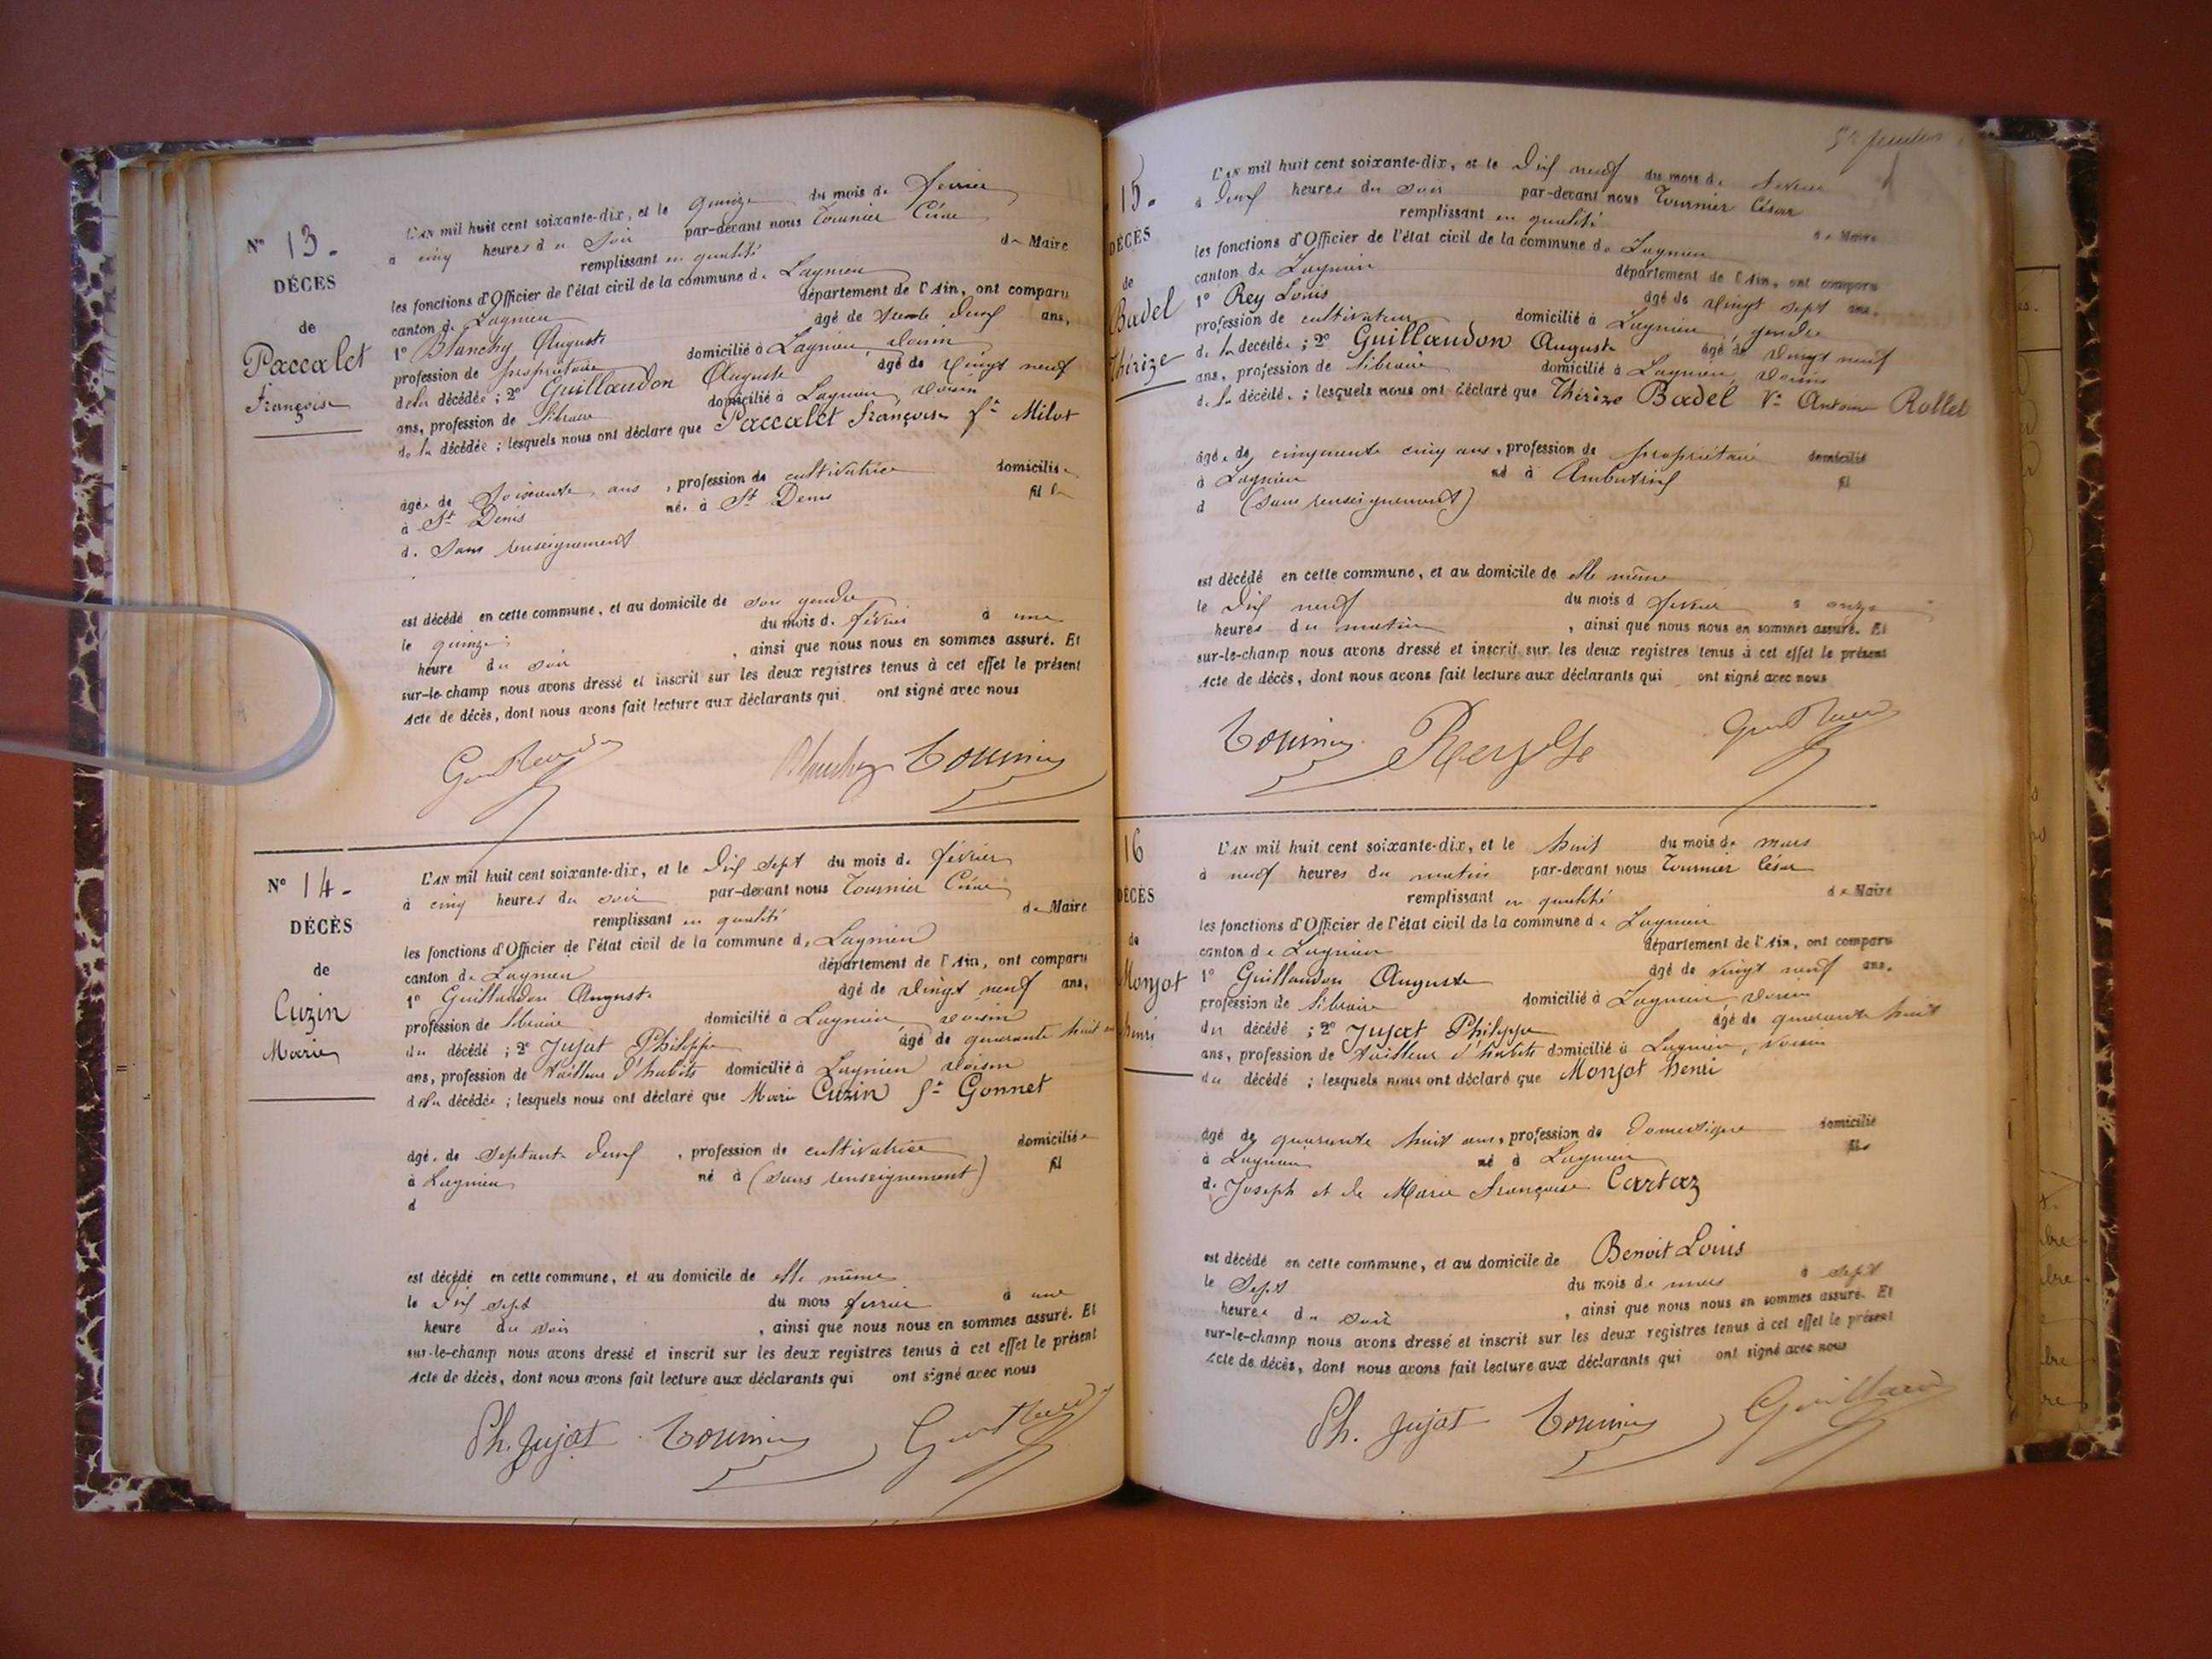 N° 13.
DÉCÈS
de
Paccalet
Françoise
L'AN mil huit cent soixante-dix, et le quinze du mois de février
à cinq heures du soir par-devant nous Tournier César
remplissant en qualité de Maire
les fonctions d'Officier de l'état civil de la commune de Lagnieu
canton de Lagnieu département de l'Ain, ont comparu
1° Blanchy Auguste âgé de trente deux ans,
profession de propriétaire domicilié à Lagnieu, voisin
de la décédée ; 2° Guillaudon Auguste âgé de vingt neuf
ans, profession de libraire domicilié à Lagnieu, voisin
de la décédée ; lesquels nous ont déclaré que Paccalet françoise fe Milot
âgée de Soixante ans , profession de cultivatrice domiciliée
à St Denis née à St Denis fille
de sans renseignement
est décédé en cette commune, et au domicile de son gendre
le quinze du mois de février à une
heure du soir , ainsi que nous nous en sommes assuré. Et
sur-le-champ nous avons dressé et inscrit sur les deux registres tenus à cet effet le présent
Acte de décès, dont nous avons fait lecture aux déclarants qui ont signé avec nous
Blanchy Tournier
N° 14.
DÉCÈS
de
Cuzin
Marie
L'AN mil huit cent soixante-dix, et le Dix sept du mois de février
à cinq heures du soir par-devant nous Tournier César
remplissant en qualité de Maire
les fonctions d'Officier de l'état civil de la commune de Lagnieu
canton de Lagnieu département de l'Ain, ont comparu
1° Guillaudon Auguste âgé de vingt neuf ans,
profession de libraire domicilié à Lagnieu, voisin
du décédé ; 2° Jujat Philippe âgé de quarante huit
ans, profession de tailleur d'habits domicilié à Lagnieu voisin
de la décédée ; lesquels nous ont déclaré que Marie Cuzin fe Gonnet
âgée de septante deux , profession de cultivatrice domiciliée
à Lagnieu né à (sans renseignement) fil
d
est décédé en cette commune, et au domicile de elle même
le Dix sept du mois fevrier à une
heure du soir , ainsi que nous nous en sommes assuré. Et
sur-le-champ nous avons dressé et inscrit sur les deux registres tenus à cet effet le présent
Acte de décès, dont nous avons fait lecture aux déclarants qui ont signé avec nous
Ph. Jujat Tournier
15.
DÉCÈS
de
Badel
Thérèze
L'AN mil huit cent soixante-dix, et le Dix neuf du mois de fevrier
à Deux heures du soir par-devant nous Tournier César
remplissant en qualité de Maire
les fonctions d'Officier de l'état civil de la commune de Lagnieu
canton de Lagnieu département de l'Ain, ont comparu
1° Rey Louis âgé de vingt sept ans.
profession de cultivateur domicilié à Lagnieu, gendre
de la décédée ; 2° Guillaudon Auguste âgé de vingt neuf
ans, profession de libraire domicilié à Lagnieu, voisin
de la décédée ; lesquels nous ont déclaré que Thérèze Badel Ve Antoine Rollet
âgée de cinquante cinq ans, profession de propriétaire domicilié
à Lagnieu né à Ambutrix fil
d (sans renseignement)
est décédé en cette commune, et au domicile de elle même
le Dix neuf du mois d fevrier à onze
heures du matin , ainsi que nous nous en sommes assuré. Et
sur-le-champ nous avons dressé et inscrit sur les deux registres tenus à cet effet le présent
Acte de décès, dont nous avons fait lecture aux déclarants qui ont signé avec nous
Tournier Rey
16
DÉCÈS
de
Monjot
henri
L'AN mil huit cent soixante-dix, et le huit du mois de mars
à neuf heures du matin par-devant nous Tournier César
remplissant en qualité de Maire
les fonctions d'Officier de l'état civil de la commune de Lagnieu
canton de Lagnieu département de l'Ain, ont comparu
1° Guillaudon Auguste âgé de vingt neuf ans.
profession de libraire domicilié à Lagnieu, voisin
du décédé ; 2° Jujat Philippe âgé de quarante huit
ans, profession de tailleur d'habits domicilié à Lagnieu, voisin
du décédé ; lesquels nous ont déclaré que Monjot henri
âgé de quarante huit ans, profession de Domestique domicilié
à Lagnieu né à Lagnieu fils
de Joseph et de Marie françoise Cartaz
est décédé en cette commune, et au domicile de Benoit Louis
le Sept du mois de mars à sept
heures du soir , ainsi que nous nous en sommes assuré. Et
sur-le-champ nous avons dressé et inscrit sur les deux registres tenus à cet effet le présent
Acte de décès, dont nous avons fait lecture aux déclarants qui ont signé avec nous
Ph. Jujat Tournier